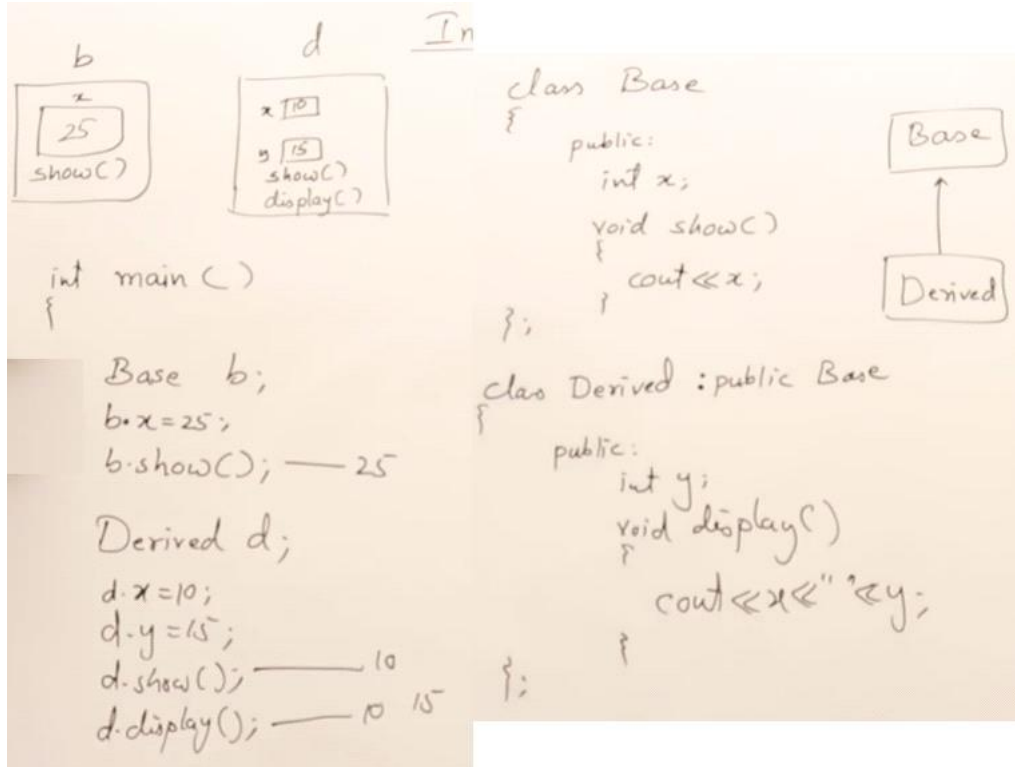 b
x
25
show()
d
x 10
y 15
show()
display()
In
int main()
{
Base b;
b.x=25;
b.show(); — 25
Derived d;
d.x=10;
d.y=15;
d.show(); — 10
d.display(); — 10 15
class Base
{
public:
int x;
void show()
{
cout<<x;
}
};
class Derived : public Base
{
public:
int y;
void display()
{
cout<<x<<" "<<y;
}
};
Base
Derived